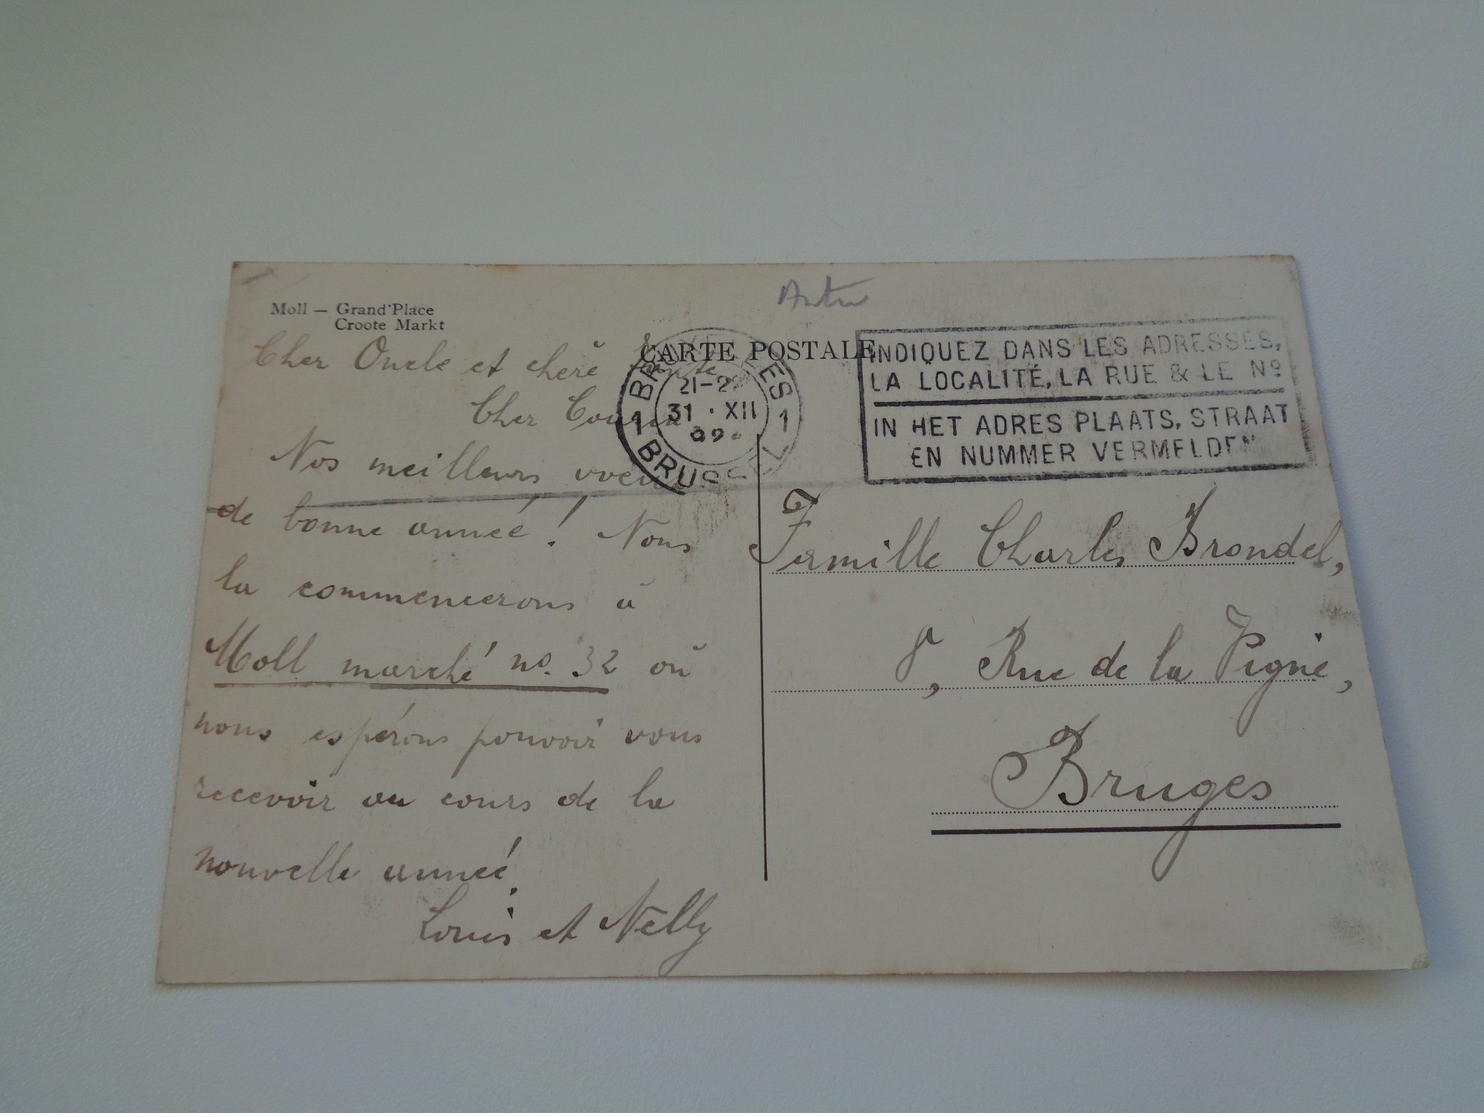 Moll — Grand'Place
Croote Markt
CARTE POSTALE
21-2
31 · XII
1 1
BRUSS
INDIQUEZ DANS LES ADRESSES,
LA LOCALITÉ, LA RUE & LE Nº
IN HET ADRES PLAATS, STRAAT
EN NUMMER VERMELDEN
Cher Oncle et chère tante
Cher Cousin
Nos meilleurs vœux
de bonne année! Nous
la commencerons à
Moll marché no. 32 où
nous espérons pouvoir vous
recevoir au cours de la
nouvelle année.
Louis et Nelly
Famille Charles Brondel,
8, Rue de la Vigne,
Bruges